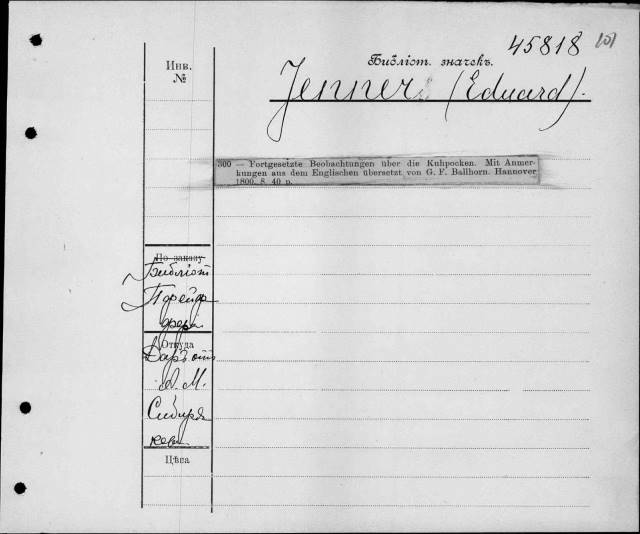 45818
Библіот. значекъ.
Инв.
№
Jenner (Eduard).
300 — Fortgesetzte Beobachtungen über die Kuhpocken. Mit Anmer-
kungen aus dem Englischen übersetzt von G. F. Ballhorn. Hannover
1800. 8. 40 p.
По заказу
Библіот
Пфейф
фера
Откуда
Даръ отъ
А. М.
Сибиря
кова
Цѣна